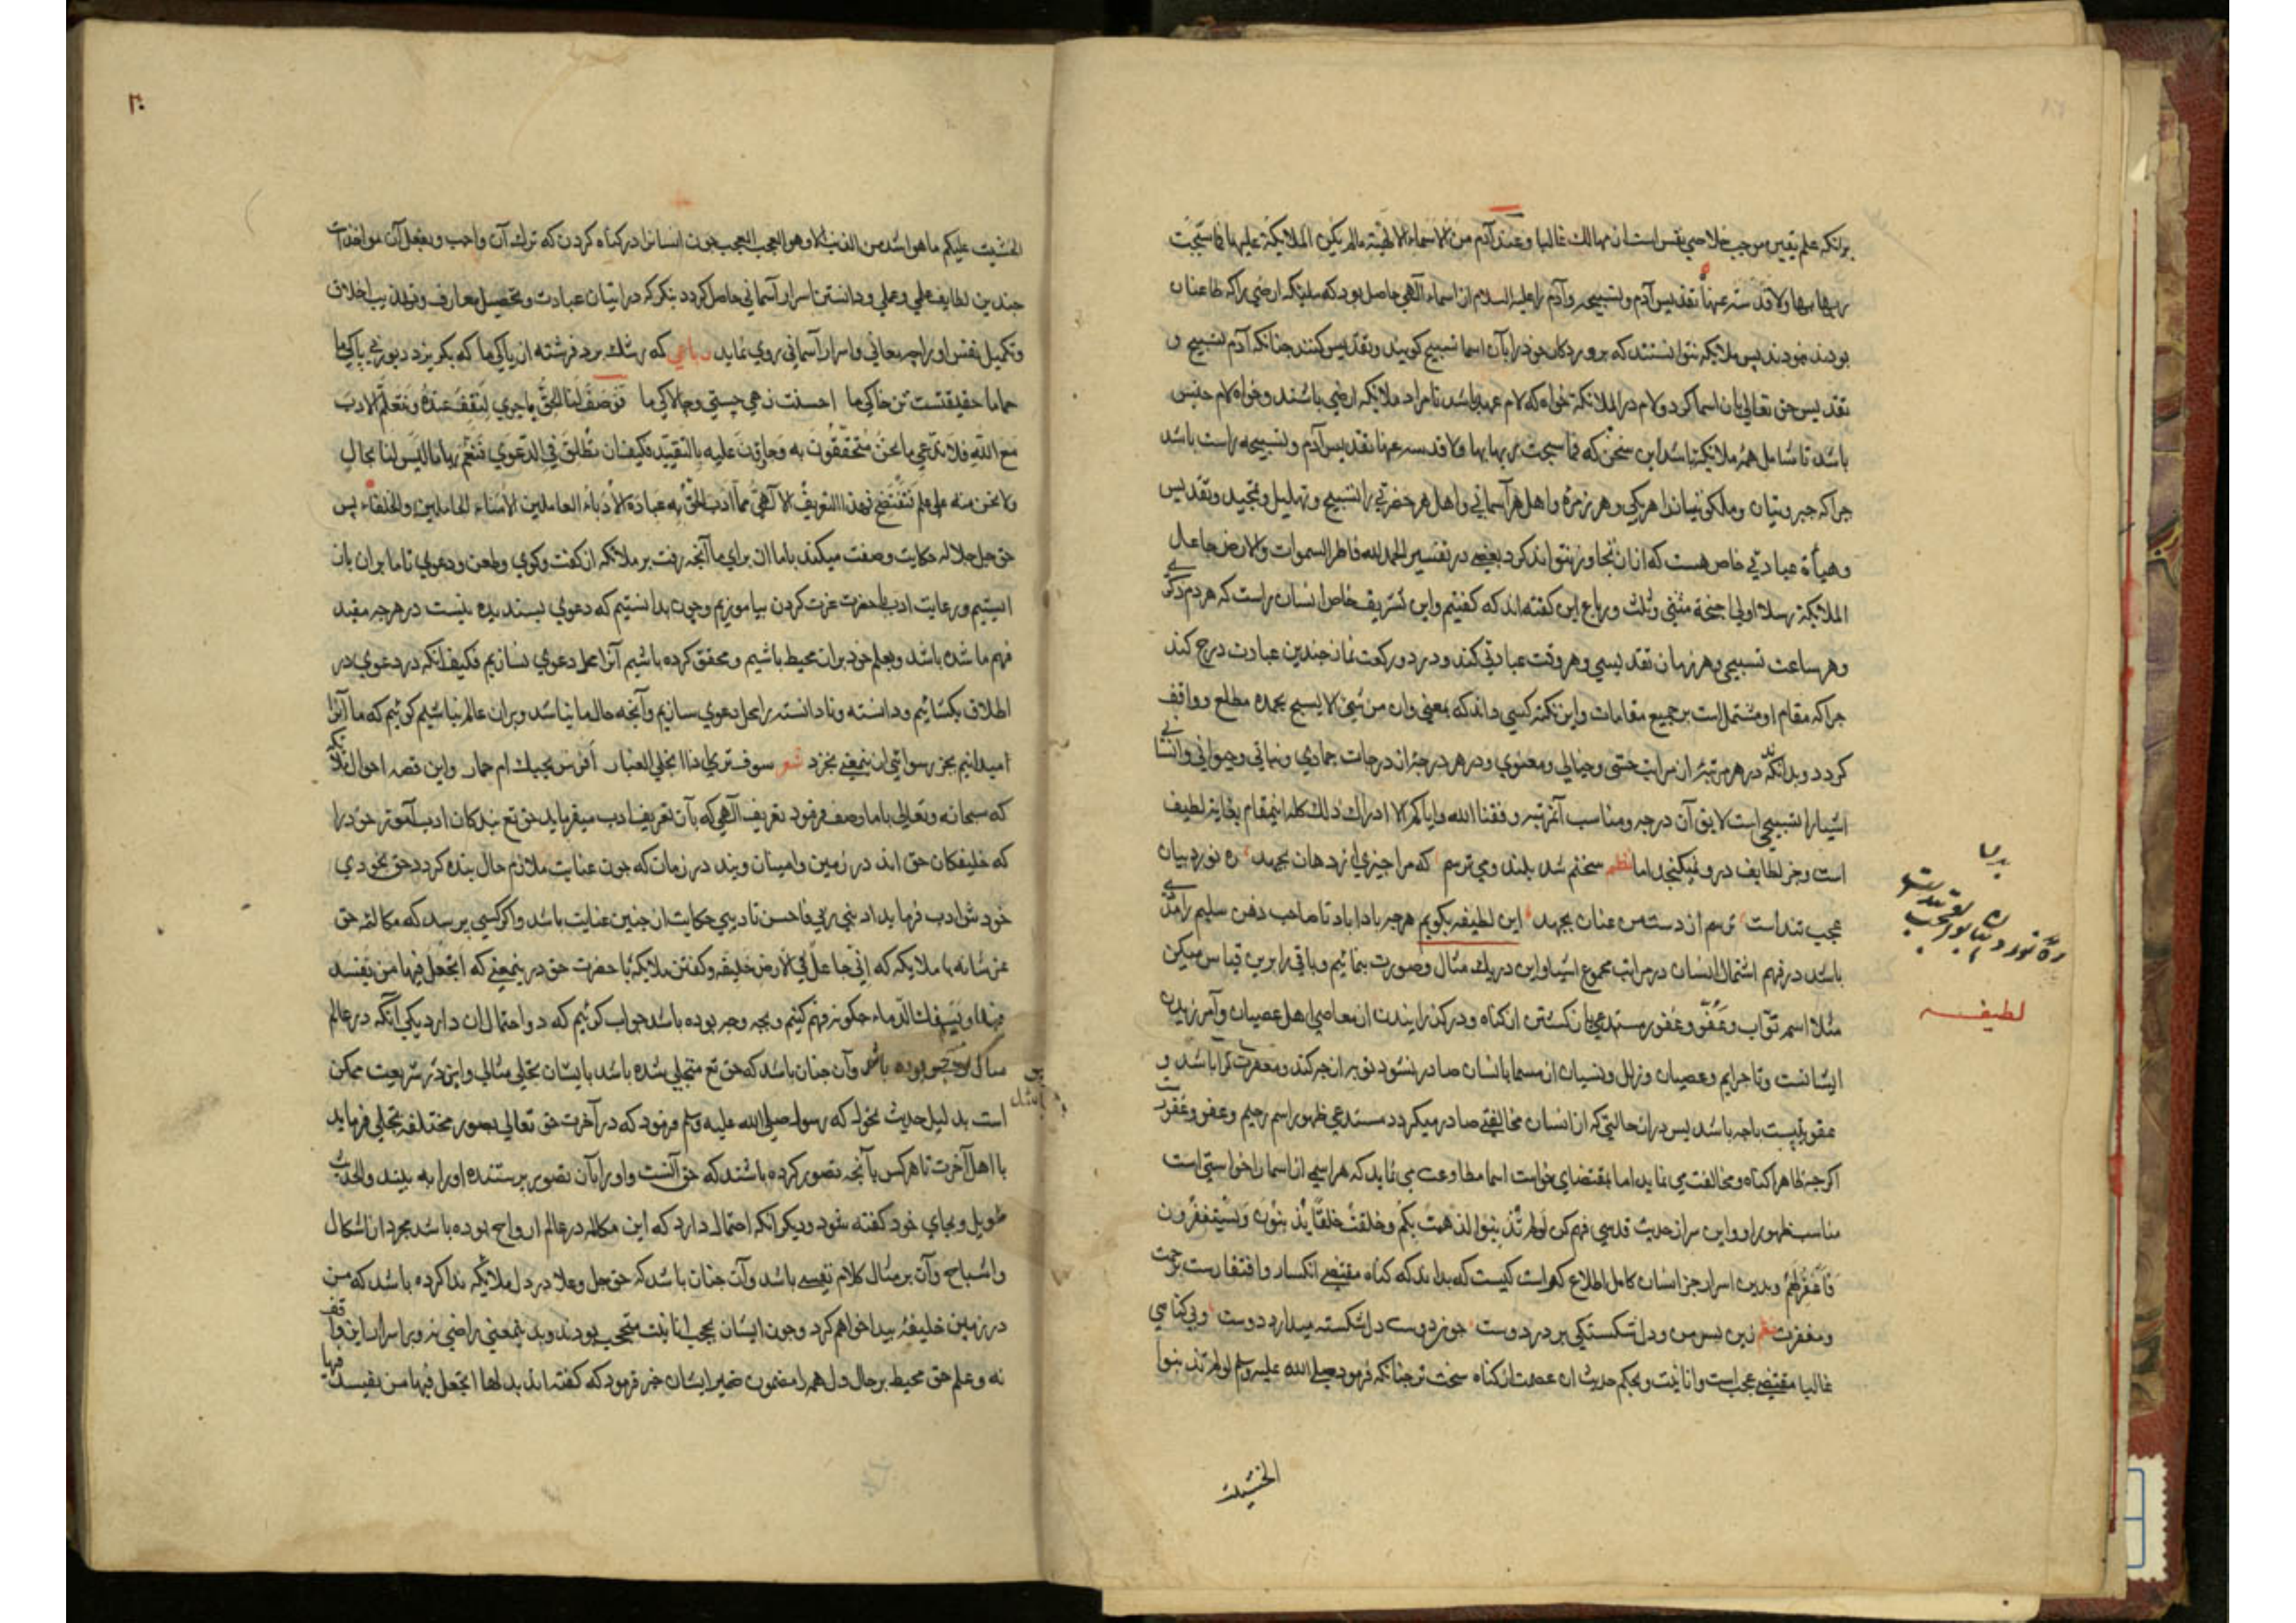 برانکه علم یقین موجب خلاصی نفس است از مهالک غالبا و عند آدم من الاسماء الالهیة مالم یکن الملائکة علیها فما سبحت
ربها بها ولا قدسته عنها تقدیس آدم و تسبیحه و آدم را علیه السلام از اسماء الهی حاصل بود که ملائکه ارضی را که طاعنان
بودند نبودند پس ملائکه نتوانستند که پروردکار خود را بآن اسما تسبیح کویند و تقدیس کنند چنانکه آدم تسبیح و
تقدیس حق تعالی بان اسما کرد و لام در الملائکة خواه که لام عهد باشد تا مراد ملائکه ارضی باشند و خواه لام جنس
باشد تا شامل همه ملائکه باشد این سخن که فما سبحت ربها بها ولا قدسته عنها تقدیس آدم و تسبیحه راست باشد
چرا که جبروتیان و ملکوتیانرا هر یکی و هر زمره و اهل هر آسمانی و اهل هر حضرتی را تسبیح و تهلیل و تمجید و تقدیس
و هیأة عبادتی خاص هست که از ان تجاوز نتواند کرد بعضی در تفسیر الحمد لله فاطر السموات والارض جاعل
الملائکة رسلا اولی اجنحة مثنی وثلث ورباع این کفته اند که کفتیم و این تشریف خاص انسان راست که هر دم ذکری
و هر ساعت تسبیحی و هر زمان تقدیسی و هر وقت عبادتی کند و در دو رکعت نماز چندین عبادت درج کند
چرا که مقام او مشتمل است بر جمیع مقامات و این نکته کسی داند که بمعنی وان من شئ الا یسبح بحمده مطلع و واقف
کردد و بدانکه در هر مرتبه از مراتب حسی و خیالی و معنوی و در هر درجه از درجات جمادی و نباتی و حیوانی و انسانی
اشیا را تسبیحی است لایق آن درجه و مناسب آن مرتبه وفقنا الله وایاکم لادراک ذلک کله اینمقام بغایت لطیف
است و جز لطایف درو نمیکنجد اما نظم سخنم شد بلند و می ترسم که مرا چیزی از دهان بجهد ره نورد بیان
عجب تند است ترسم از دست من عنان بجهد این لطیفه بکویم هرچه بادا باد تا صاحب ذهن سلیم را مدد
باشد در فهم اشتمال انسان در مراتب مجموع اشیا و این در یک مثال و صورت بنمائیم و باقی را برین قیاس میکن
مثلا اسم تواب و عفو و غفور مستدعی بازکشتن از کناه و درکذرانیدن از معاصی اهل عصیان و آمرزیدن
ایشانست و تا جرایم و عصیان و زلل و نسیان از مسما بانسان صادر نشود توبه از چه کند و مغفرت کرا باشد و
عفو چیست باچه باشد پس در ان حالتی که از انسان مخالفتی صادر میکردد مستدعی ظهور اسم رحیم و عفو و غفورست
اکرچه ظاهرا کناه و مخالفت می نماید اما بمقتضای خواست اسما مطاوعت می نماید که هر اسمی از اسما را خواستی است
مناسب ظهور او و این سر از حدیث قدسی فهم کن لو لم تذنبوا لذهبت بکم وخلقت خلقا یذنبون ویستغفرون
فاغفر لهم و بدین اسرار جز انسان کامل اطلاع کراست کیست که بداند که کناه مقتضی انکسار و افتقارست برحمت
و مغفرت شعر زین پس من و دل شکستکی بر در دوست چون دوست دل شکسته میدارد دوست و بی کناهی
غالبا مقتضی عجب است و انانیت و بحکم حدیث ان عصمت از کناه سخت تر چنانکه فرمود صلی الله علیه وسلم لو لم تذنبوا
الخشیت
لطیفه
۲۰
لخشیت علیکم ما هو اشد من الذنب الا وهو العجب العجب العجب چون انسانرا در کناه کردن که ترک آن واجب و بفعل آن مواخذت
چندین لطایف علمی و عملی و دانستن اسرار آسمانی حاصل کردد بنکر که در اتیان عبادت و تحصیل معارف و تهذیب اخلاق
و تکمیل نفس او را چه معانی و اسرار آسمانی روی نماید رباعی که رشک برد فرشته از پاکی ما که بکریزد دیو ز بی باکی ما
حاما حقیقتست تن خاکی ما احسنت زهی چستی و چالاکی ما فوصف لنا الحق ما جری لنقف عنده ونتعلم الادب
مع الله فلا ندعی ما نحن متحققون به وحاوون علیه بالتقیید فکیف ان نطلق فی الدعوی فنعم بها ما لیس لنا بحال
ولا نحن منه علی علم فنفتضح فهذا التعریف الالهی مما ادب الحق به عبادة الادباء العاملین الامناء الحاملین والخلفاء پس
حق جل جلاله حکایت و صفت میکند باما از برای ما آنچه رفت بر ملائکه از کفت و کوی و طعن و دعوی تا ما بران باز
ایستیم و رعایت ادب با حضرت عزت کردن بیاموزیم و چون بدانستیم که دعوی پسندیده نیست در هرچه مقید
فهم ما شده باشد و بعلم خود بران محیط باشیم و محقق کرده باشیم آنرا محل دعوی نسازیم فکیف انکه در دعوی در
اطلاق بکشائیم و دانسته و نادانسته را محل دعوی سازیم و آنچه حال ما نباشد و بران عالم نباشیم کوئیم که ما آنرا
میدانیم بجز رسوائی از ینمعنی نخیزد شعر سوف تری اذا انجلی الغبار أفرس تحتک ام حمار و این قصه احوال ملائکه
که سبحانه و تعالی باما وصف فرمود تعریف الهی که بآن تعریف ادب میفرماید حق تع بندکان ادب آموز خود را
که خلیفکان حق اند در زمین و امینان ویند در زمان که چون عنایت ملازم حال بنده کردد حق بخودی
خودش ادب فرماید ادبنی ربی فاحسن تادیبی حکایت از چنین عنایت باشد و اکر کسی پرسد که مکالمه حق
عز شانه با ملائکه که انی جاعل فی الارض خلیفة و کفتن ملائکه با حضرت حق در ینمعنی که اتجعل فیها من یفسد
فیها ویسفک الدماء چکونه فهم کنیم و بچه وجه بوده باشد جواب کوئیم که دو احتمال ان دارد یکی آنکه در عالم
مثال بوده باشد و آن چنان باشد که حق تع متجلی شده باشد بایشان بتجلی مثالی و این در شریعت ممکن
است بدلیل حدیث تحول که رسول صلی الله علیه وسلم فرمود که در آخرت حق تعالی بصور مختلفه تجلی فرماید
با اهل آخرت تا هرکس بآنچه تصور کرده باشند که حق آنست و او را بآن تصویر پرستنده او را به بینند والحدیث
طویل و بجای خود کفته شود و دیکر انکه احتمال دارد که این مکالمه در عالم ارواح بوده باشد مجرد از اشکال
و اشباح و آن بر مثال کلام نفسی باشد و آن چنان باشد که حق جل وعلا در دل ملائکه ندا کرده باشد که من
در زمین خلیفه پیدا خواهم کرد و چون ایشان بحجب انانیت محتجب بودند و بدینمعنی راضی نه و بر اسرار این واقف
نه و علم حق محیط بر حال دل همه را مضمون ضمیر ایشان خبر فرمود که کفته اند بدلها اتجعل فیها من یفسد فیها